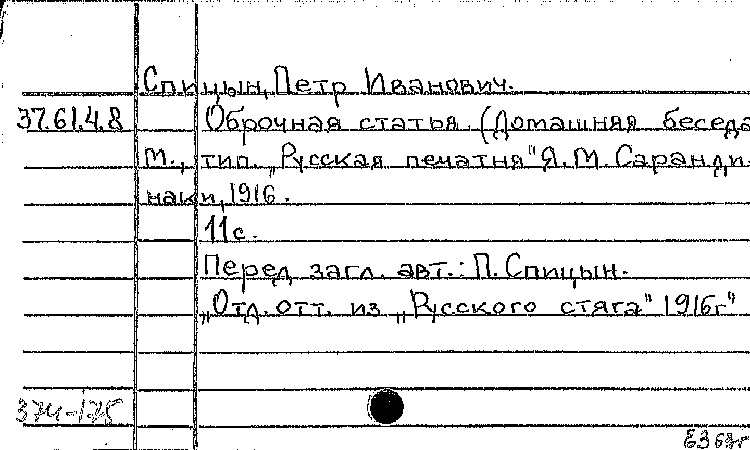 Спицын, Петр Иванович.
37.61.4.8 Оброчная статья. (Домашняя беседа
М., тип. „Русская печатня" Я. М. Саранди-
наки, 1916.
11 с.
Перед загл. авт.: П. Спицын.
„Отд. отт. из „Русского стяга" 1916г"
374-175